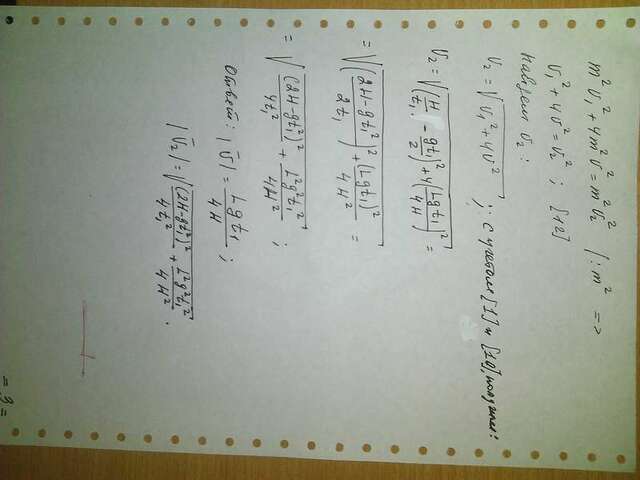 m² v₁² + 4m² v² = m² v₂² | : m² =>
v₁² + 4v² = v₂² ; [12]
Найдем v₂ :
v₂ = √(v₁² + 4v²) ; с учетом [1] и [10], получим:
v₂ = √((H/t₁ - gt₁/2)² + 4(Lgt₁/4H)²) =
= √(((2H-gt₁²)/2t₁)² + (Lgt₁)²/4H²) =
= √((2H-gt₁²)²/4t₁² + L²g²t₁²/4H²) ;
Ответ: |v̄| = Lgt₁/4H ;
|v̄₂| = √((2H-gt₁²)²/4t₁² + L²g²t₁²/4H²) .